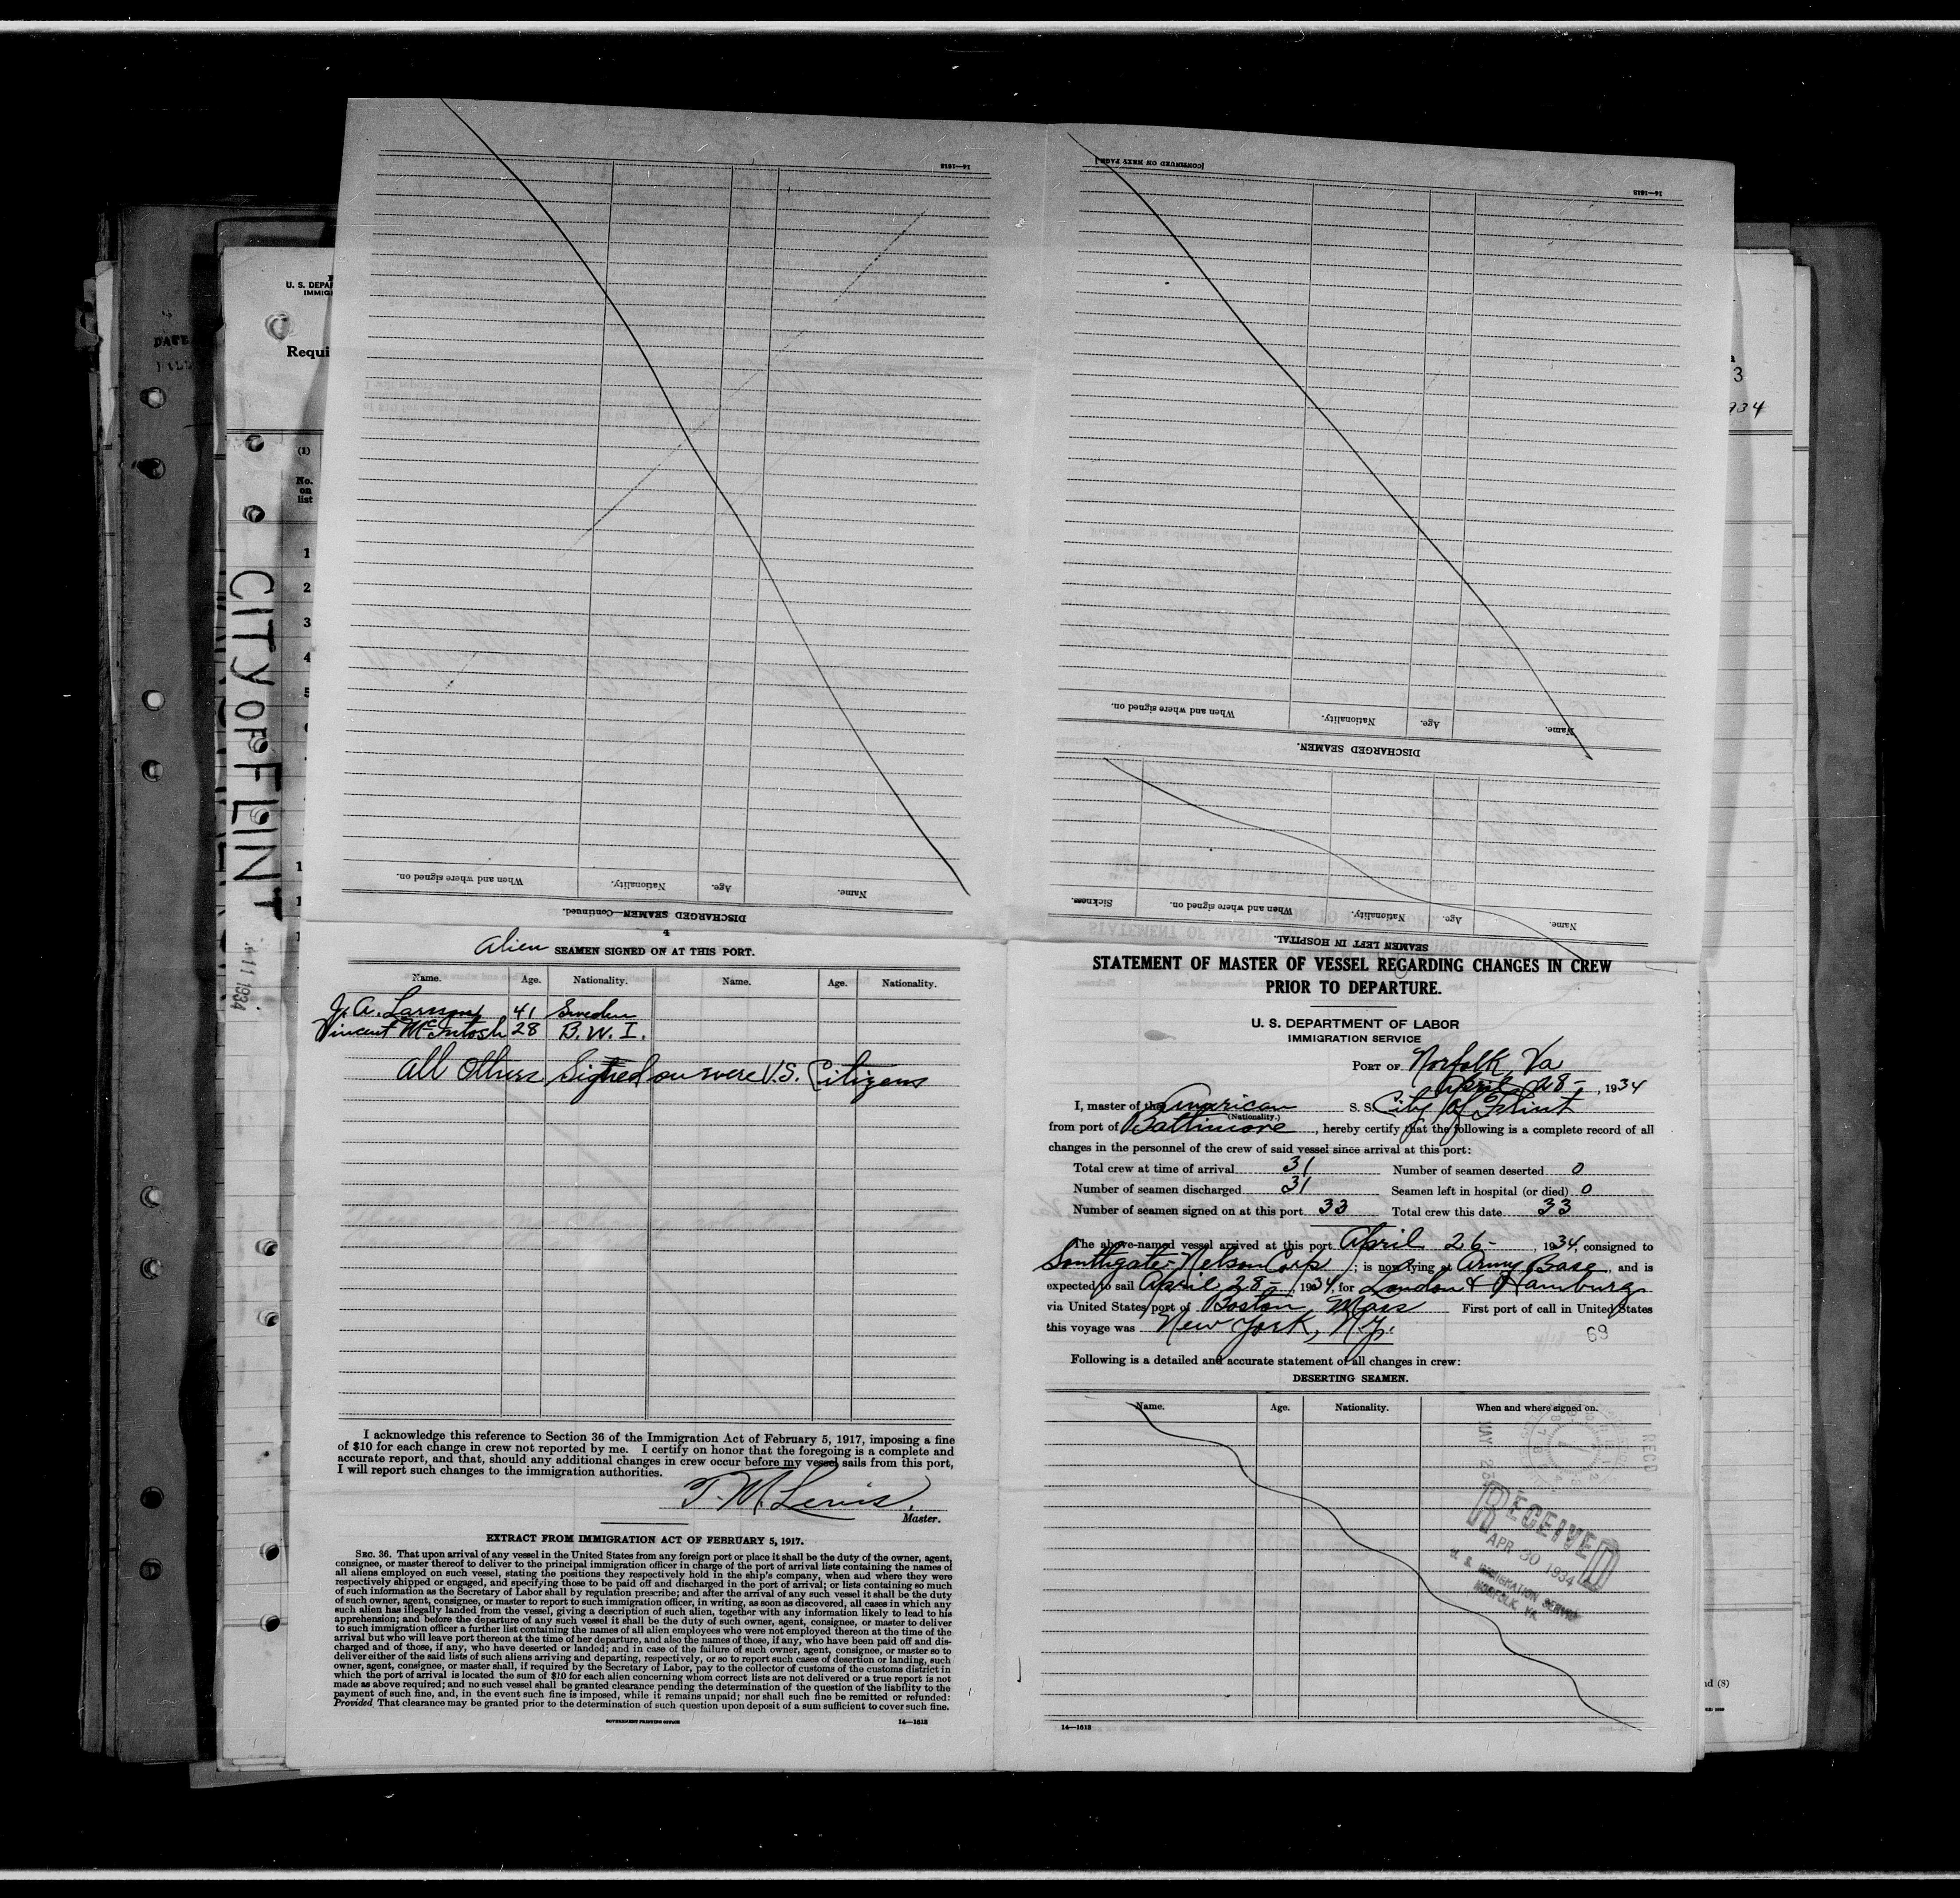 16—1613
[CONTINUED ON NEXT PAGE]
16—1613
When and where signed on.
Nationality.
Age.
Name.
DISCHARGED SEAMEN.
Sickness.
When and where signed on.
Nationality.
Age.
Name.
SEAMEN LEFT IN HOSPITAL.
When and where signed on.
Nationality.
Age.
Name.
DISCHARGED SEAMEN—Continued.
U. S. DEPA
IMMIG
Requi
(1)
No.
on
list
1
2
3
4
5
DATE
CITY OF FLINT
11 1934
3
934
4
Alien SEAMEN SIGNED ON AT THIS PORT.
Name. Age. Nationality. Name. Age. Nationality.
J. A. Larsson 41 Sweden
Vincent McIntosh 28 B. W. I.
All Others Signed on were U.S. Citizens
I acknowledge this reference to Section 36 of the Immigration Act of February 5, 1917, imposing a fine
of $10 for each change in crew not reported by me. I certify on honor that the foregoing is a complete and
accurate report, and that, should any additional changes in crew occur before my vessel sails from this port,
I will report such changes to the immigration authorities.
T. M. Lewis.
Master.
EXTRACT FROM IMMIGRATION ACT OF FEBRUARY 5, 1917.
SEC. 36. That upon arrival of any vessel in the United States from any foreign port or place it shall be the duty of the owner, agent,
consignee, or master thereof to deliver to the principal immigration officer in charge of the port of arrival lists containing the names of
all aliens employed on such vessel, stating the positions they respectively hold in the ship's company, when and where they were
respectively shipped or engaged, and specifying those to be paid off and discharged in the port of arrival; or lists containing so much
of such information as the Secretary of Labor shall by regulation prescribe; and after the arrival of any such vessel it shall be the duty
of such owner, agent, consignee, or master to report to such immigration officer, in writing, as soon as discovered, all cases in which any
such alien has illegally landed from the vessel, giving a description of such alien, together with any information likely to lead to his
apprehension; and before the departure of any such vessel it shall be the duty of such owner, agent, consignee, or master to deliver
to such immigration officer a further list containing the names of all alien employees who were not employed thereon at the time of the
arrival but who will leave port thereon at the time of her departure, and also the names of those, if any, who have been paid off and dis-
charged and of those, if any, who have deserted or landed; and in case of the failure of such owner, agent, consignee, or master so to
deliver either of the said lists of such aliens arriving and departing, respectively, or so to report such cases of desertion or landing, such
owner, agent, consignee, or master shall, if required by the Secretary of Labor, pay to the collector of customs of the customs district in
which the port of arrival is located the sum of $10 for each alien concerning whom correct lists are not delivered or a true report is not
made as above required; and no such vessel shall be granted clearance pending the determination of the question of the liability to the
payment of such fine, and, in the event such fine is imposed, while it remains unpaid; nor shall such fine be remitted or refunded:
Provided That clearance may be granted prior to the determination of such question upon deposit of a sum sufficient to cover such fine.
GOVERNMENT PRINTING OFFICE 14—1613
STATEMENT OF MASTER OF VESSEL REGARDING CHANGES IN CREW
PRIOR TO DEPARTURE.
U. S. DEPARTMENT OF LABOR
IMMIGRATION SERVICE
PORT OF Norfolk, Va
April 28-, 1934
I, master of the American S. S. City of Flint
(Nationality.)
from port of Baltimore, hereby certify that the following is a complete record of all
changes in the personnel of the crew of said vessel since arrival at this port:
Total crew at time of arrival 31 Number of seamen deserted 0
Number of seamen discharged 31 Seamen left in hospital (or died) 0
Number of seamen signed on at this port 33 Total crew this date 33
The above-named vessel arrived at this port April 26-, 1934, consigned to
Southgate-Nelson Corp; is now lying at Army Base, and is
expected to sail April 28-, 1934, for London & Hamburg
via United States port of Boston, Mass First port of call in United States
this voyage was New York, N.Y.
69
Following is a detailed and accurate statement of all changes in crew:
DESERTING SEAMEN.
Name. Age. Nationality. When and where signed on.
REC'D
MAY 23
RECEIVED
APR 30 1934
U. S. IMMIGRATION SERVICE
NORFOLK, VA.
14—1613
nd (8)